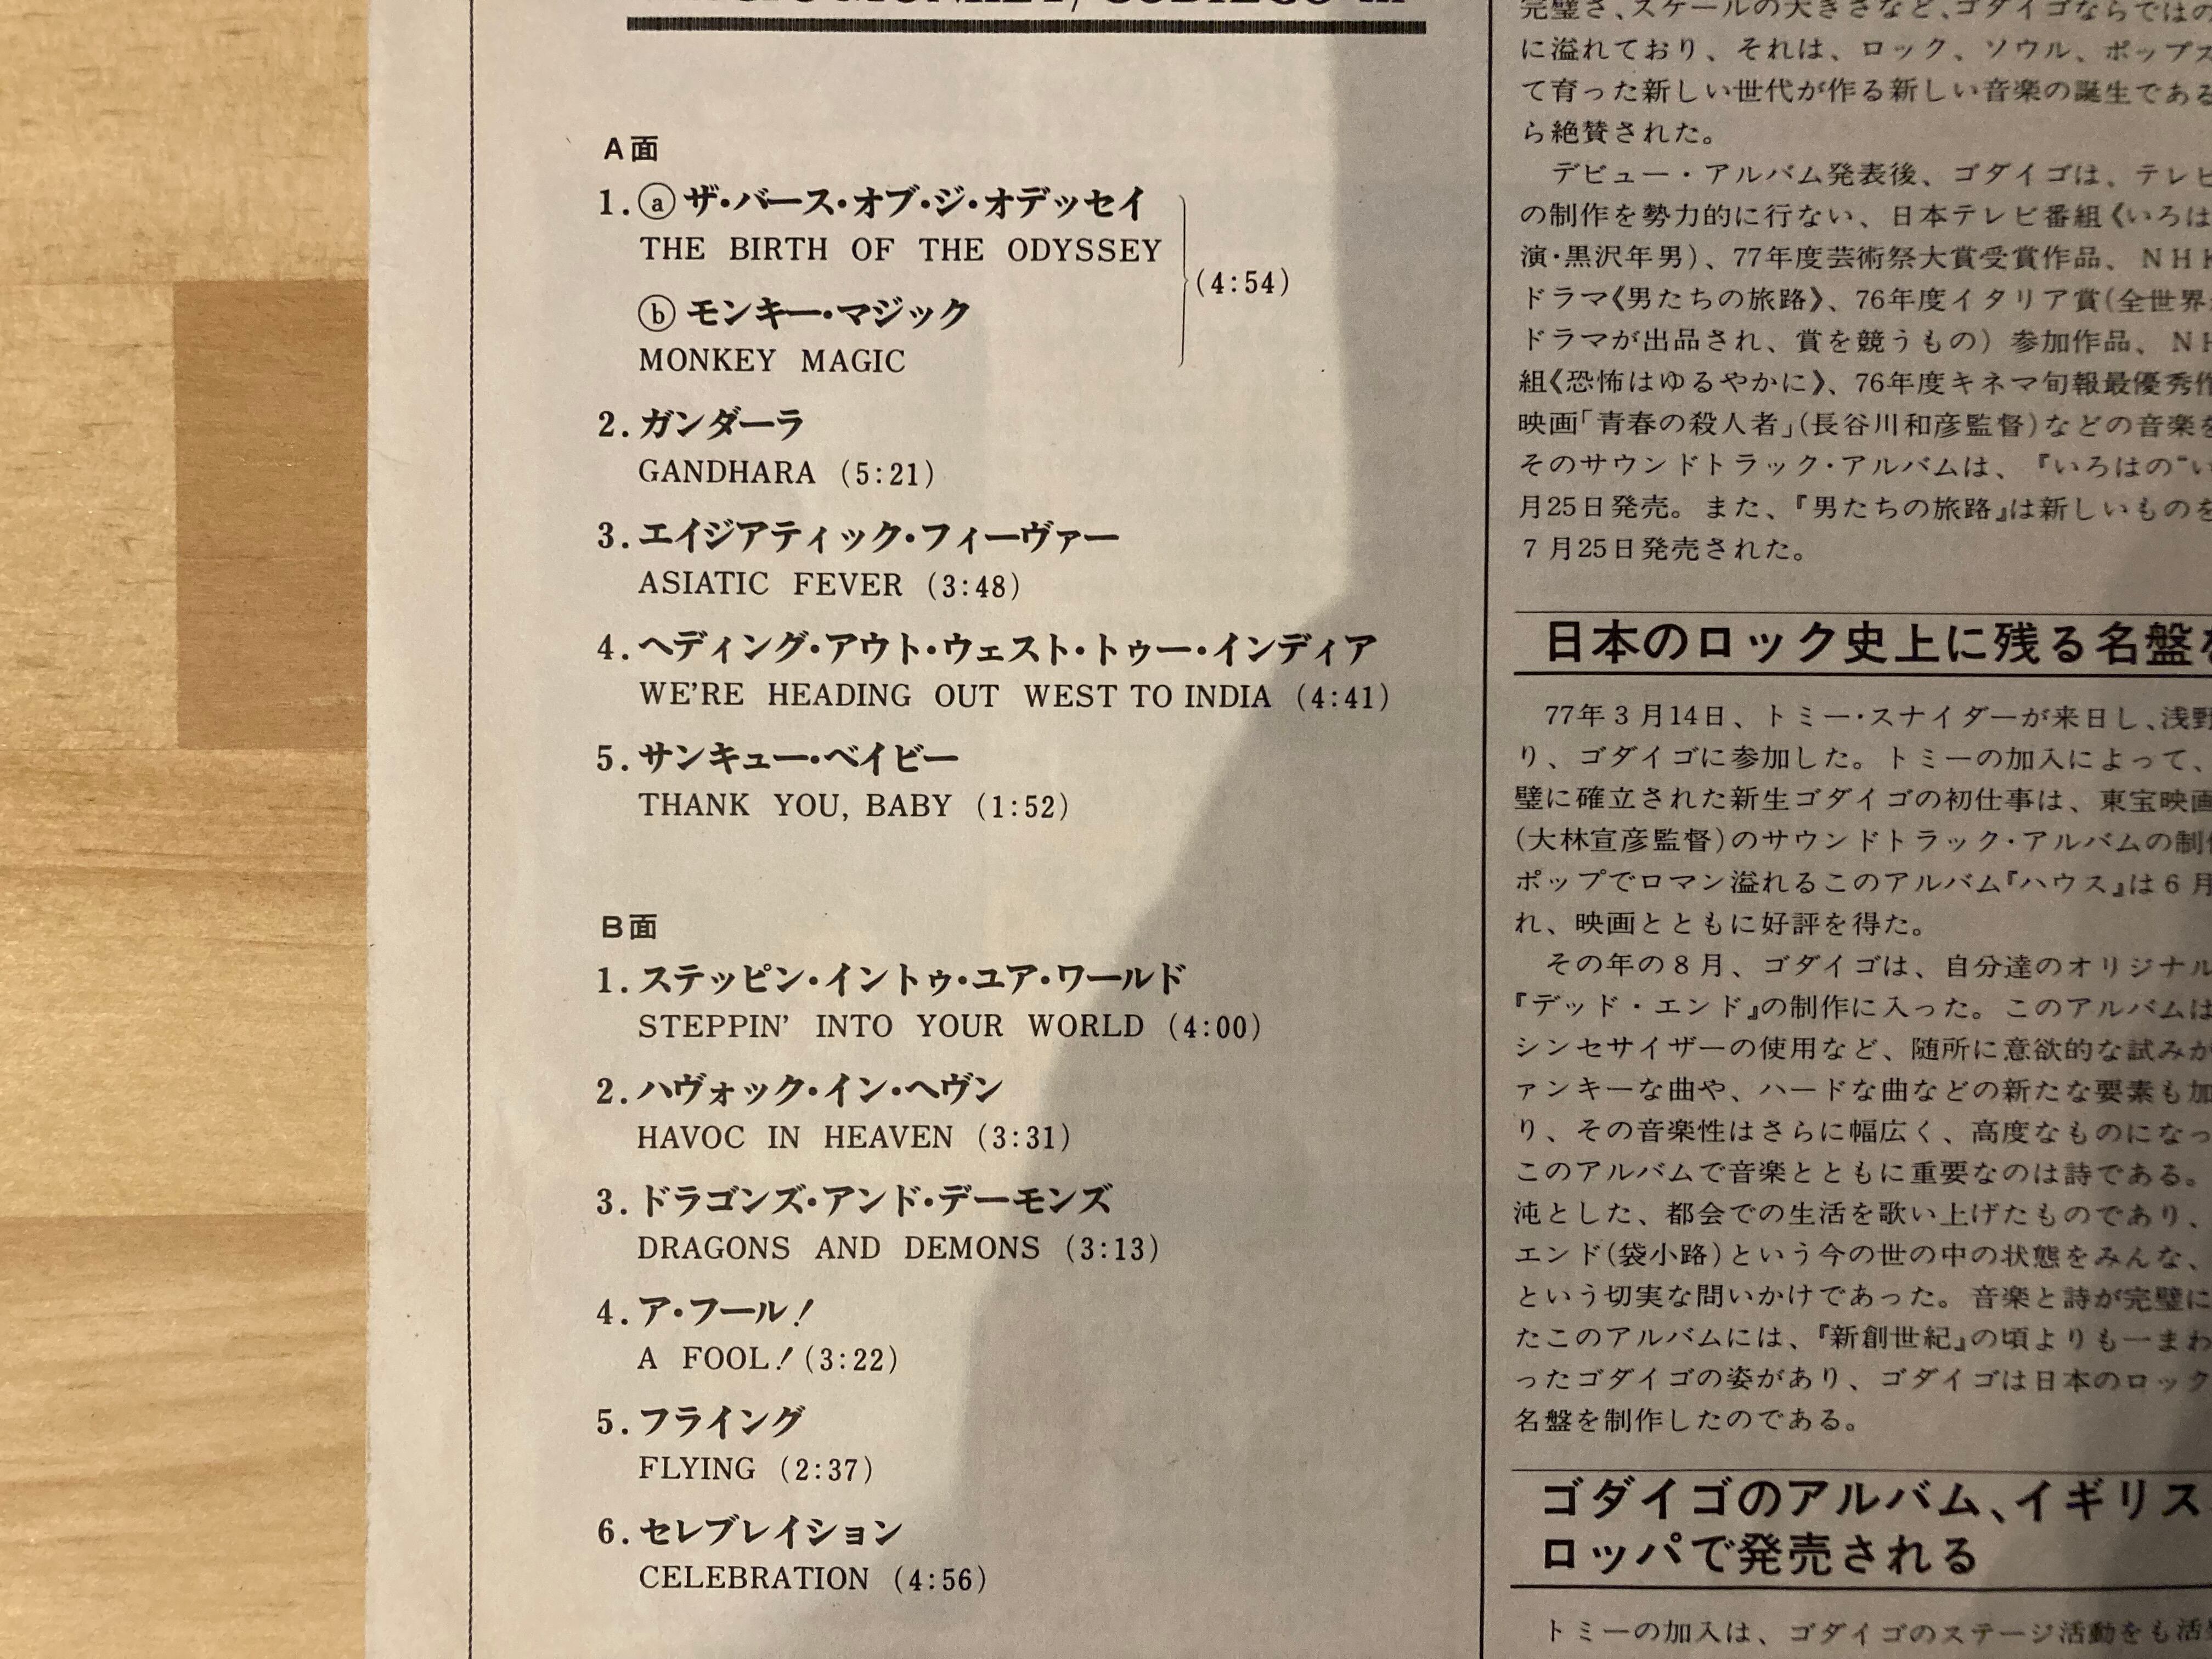 A面
1. ⓐ ザ・バース・オブ・ジ・オデッセイ
THE BIRTH OF THE ODYSSEY
(4:54)
ⓑ モンキー・マジック
MONKEY MAGIC
2. ガンダーラ
GANDHARA (5:21)
3. エイジアティック・フィーヴァー
ASIATIC FEVER (3:48)
4. ヘディング・アウト・ウェスト・トゥー・インディア
WE'RE HEADING OUT WEST TO INDIA (4:41)
5. サンキュー・ベイビー
THANK YOU, BABY (1:52)
B面
1. ステッピン・イントゥ・ユア・ワールド
STEPPIN' INTO YOUR WORLD (4:00)
2. ハヴォック・イン・ヘヴン
HAVOC IN HEAVEN (3:31)
3. ドラゴンズ・アンド・デーモンズ
DRAGONS AND DEMONS (3:13)
4. ア・フール!
A FOOL! (3:22)
5. フライング
FLYING (2:37)
6. セレブレイション
CELEBRATION (4:56)
完璧さ、スケールの大きさなど、ゴダイゴならではの
に溢れており、それは、ロック、ソウル、ポップス
て育った新しい世代が作る新しい音楽の誕生である
ら絶賛された。
デビュー・アルバム発表後、ゴダイゴは、テレビ
の制作を勢力的に行ない、日本テレビ番組《いろは
演・黒沢年男)、77年度芸術祭大賞受賞作品、NHK
ドラマ《男たちの旅路》、76年度イタリア賞(全世界
ドラマが出品され、賞を競うもの) 参加作品、NH
組《恐怖はゆるやかに》、76年度キネマ旬報最優秀作
映画「青春の殺人者」(長谷川和彦監督)などの音楽を
そのサウンドトラック・アルバムは、『いろはの“い
月25日発売。また、『男たちの旅路』は新しいものを
7月25日発売された。
日本のロック史上に残る名盤を
77年3月14日、トミー・スナイダーが来日し、浅野
り、ゴダイゴに参加した。トミーの加入によって、
璧に確立された新生ゴダイゴの初仕事は、東宝映画
(大林宣彦監督)のサウンドトラック・アルバムの制作
ポップでロマン溢れるこのアルバム『ハウス』は6月
れ、映画とともに好評を得た。
その年の8月、ゴダイゴは、自分達のオリジナル
『デッド・エンド』の制作に入った。このアルバムは
シンセサイザーの使用など、随所に意欲的な試みが
ァンキーな曲や、ハードな曲などの新たな要素も加
り、その音楽性はさらに幅広く、高度なものになっ
このアルバムで音楽とともに重要なのは詩である。
沌とした、都会での生活を歌い上げたものであり、
エンド(袋小路)という今の世の中の状態をみんな、
という切実な問いかけであった。音楽と詩が完璧に
たこのアルバムには、『新創世紀』の頃よりも一まわ
ったゴダイゴの姿があり、ゴダイゴは日本のロック
名盤を制作したのである。
ゴダイゴのアルバム、イギリス
ロッパで発売される
トミーの加入は、ゴダイゴのステージ活動をも活